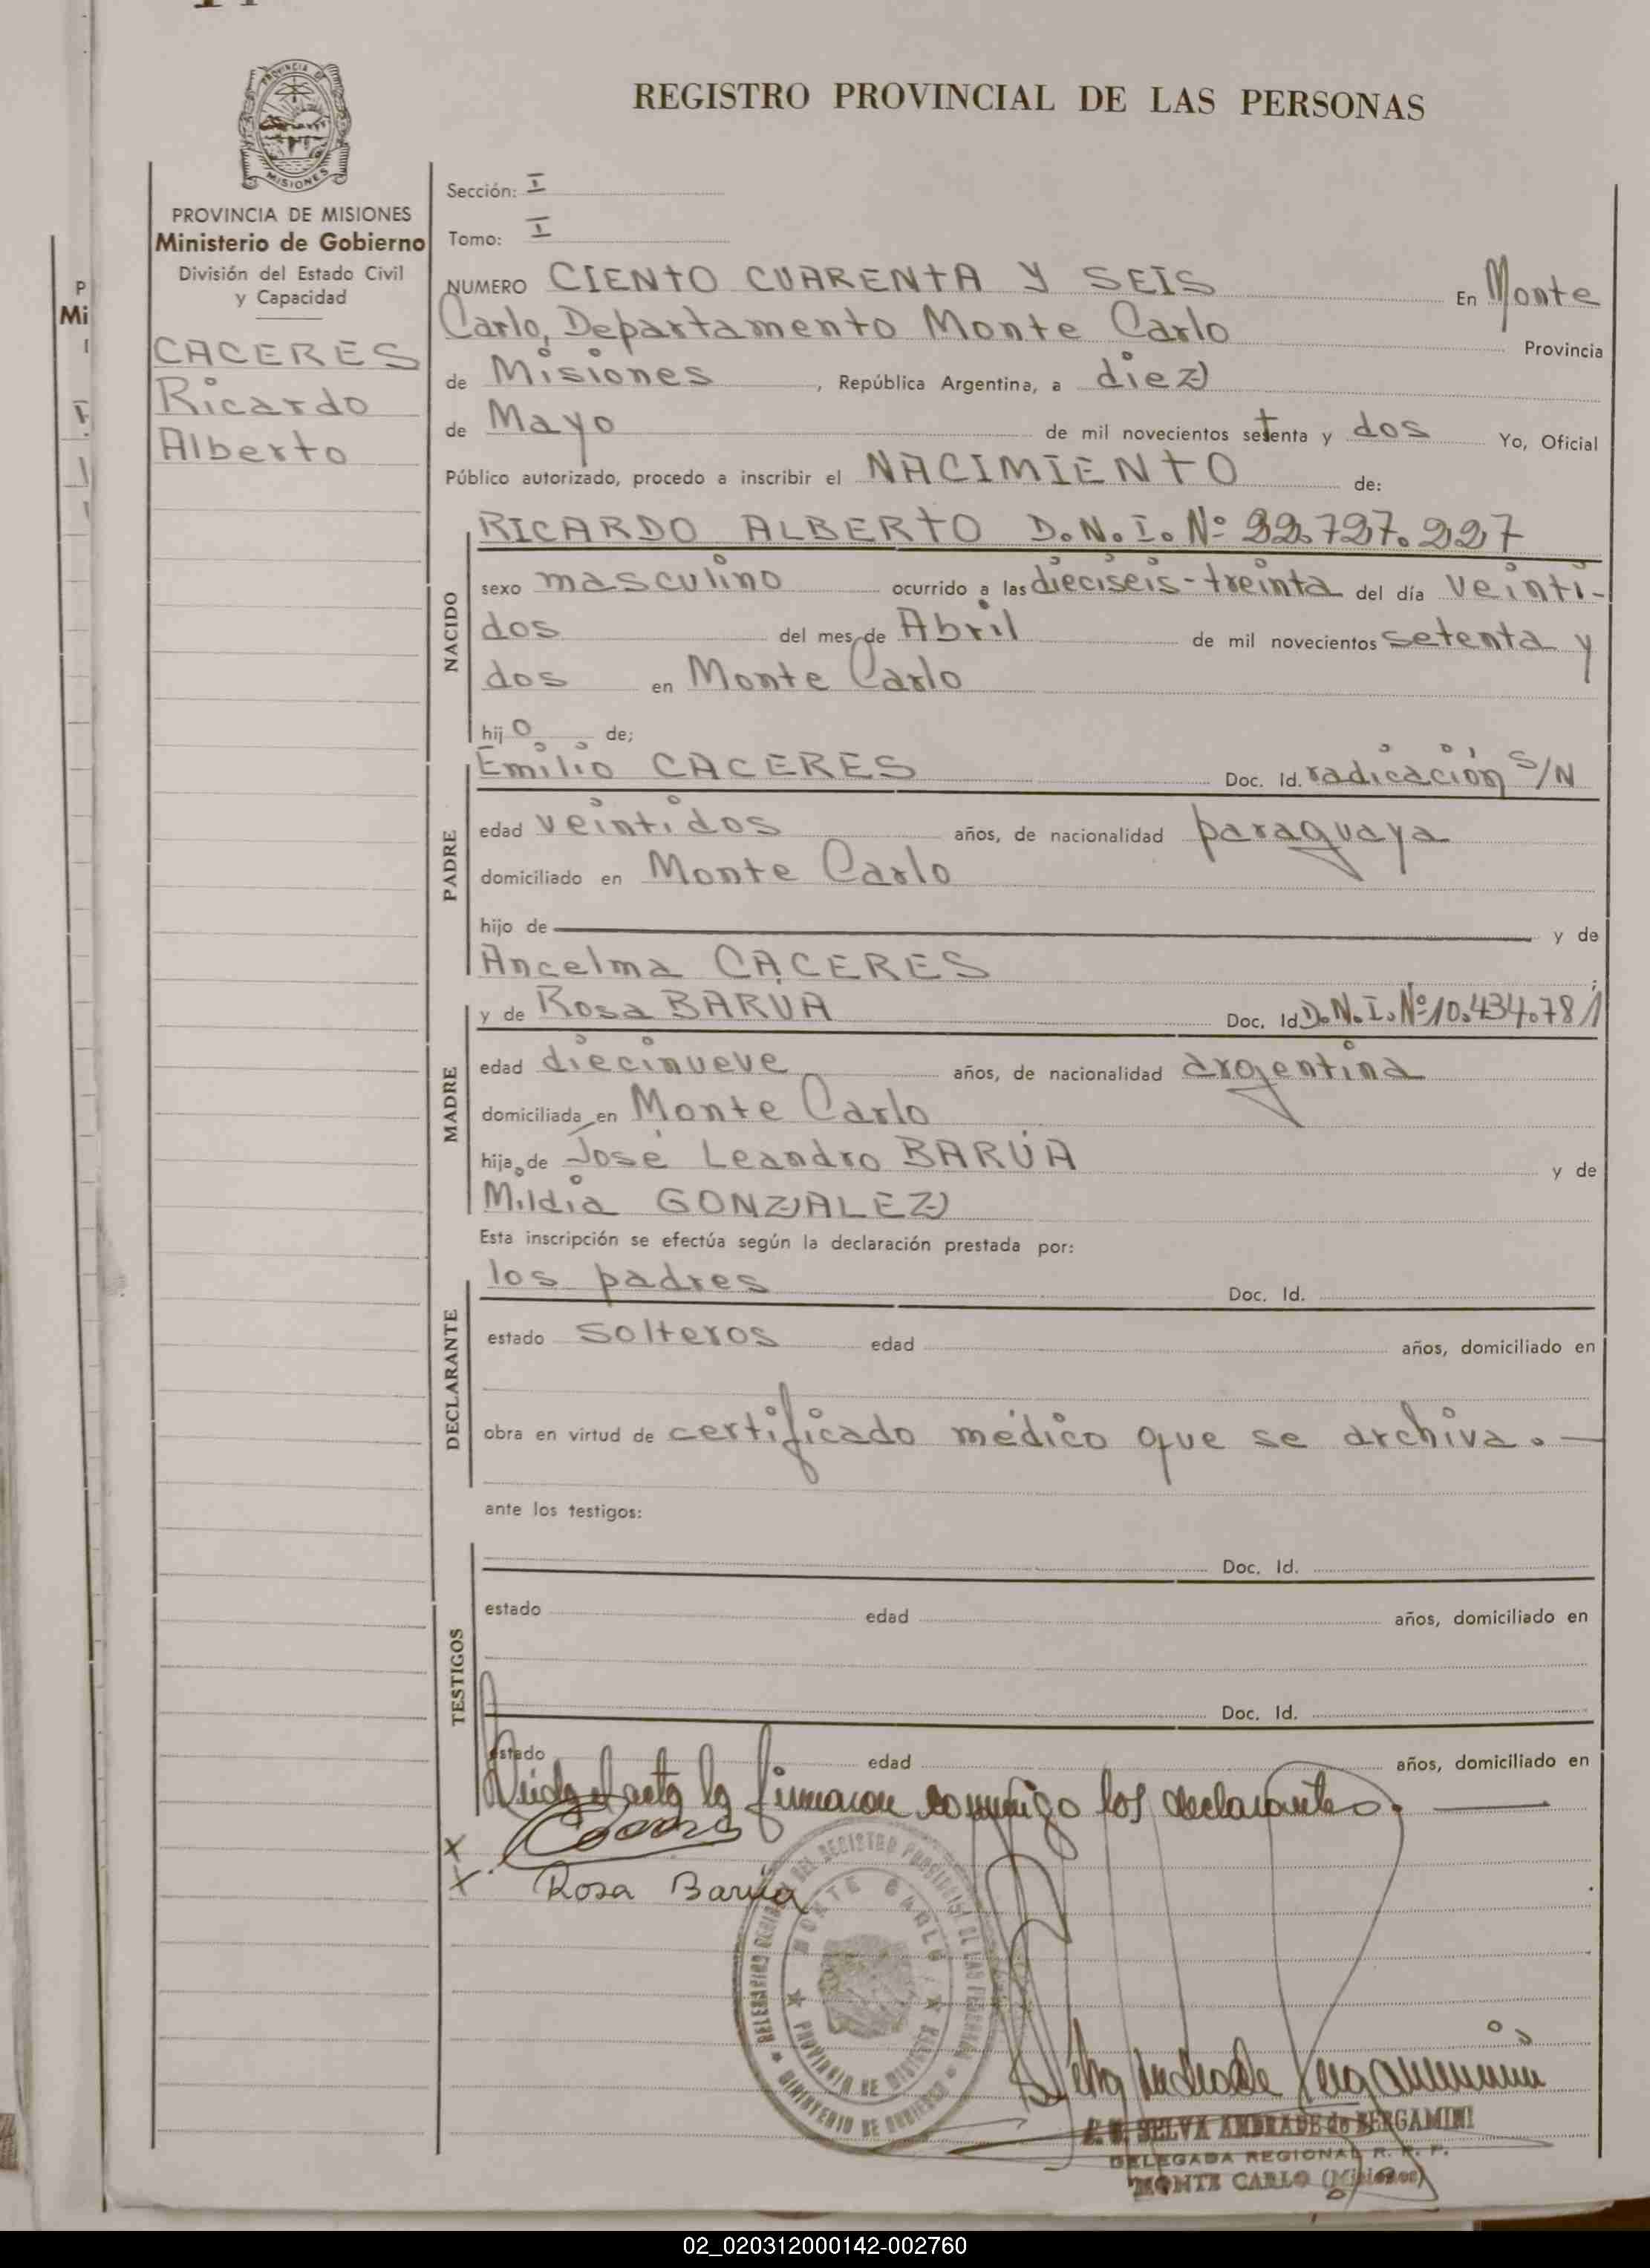 REGISTRO PROVINCIAL DE LAS PERSONAS
PROVINCIA DE MISIONES
Ministerio de Gobierno
División del Estado Civil
y Capacidad
CACERES
Ricardo
Alberto
Sección: I
Tomo: I
NUMERO CIENTO CUARENTA Y SEIS En Monte
Carlo, Departamento Monte Carlo Provincia
de Misiones, República Argentina, a diez
de Mayo de mil novecientos setenta y dos Yo, Oficial
Público autorizado, procedo a inscribir el NACIMIENTO de:
NACIDO
RICARDO ALBERTO D.N.I. Nº 22.727.227
sexo masculino ocurrido a las dieciseis-treinta del día veinti-
dos del mes de Abril de mil novecientos setenta y
dos en Monte Carlo
hijo de;
PADRE
Emilio CACERES Doc. Id. radicación S/N
edad veintidos años, de nacionalidad paraguaya
domiciliado en Monte Carlo
hijo de y de
Ancelma CACERES
MADRE
y de Rosa BARUA Doc. Id D.N.I. Nº 10.434.781
edad diecinueve años, de nacionalidad argentina
domiciliada en Monte Carlo
hija de José Leandro BARÚA y de
Mildia GONZALEZ
Esta inscripción se efectúa según la declaración prestada por:
DECLARANTE
los padres Doc. Id.
estado solteros edad años, domiciliado en
obra en virtud de certificado médico que se archiva.-
ante los testigos:
TESTIGOS
Doc. Id.
estado edad años, domiciliado en
Doc. Id.
estado edad años, domiciliado en
Leida el acta la firmaron conmigo los declarantes.
x
x Rosa Barúa
MONTE CARLO
PROVINCIA DE MISIONES
MINISTERIO DE GOBIERNO
SELVA ANDRADE de BERGAMINI
DELEGADA REGIONAL R. P. P.
MONTE CARLO (Misiones)
P
Mi
02_020312000142-002760